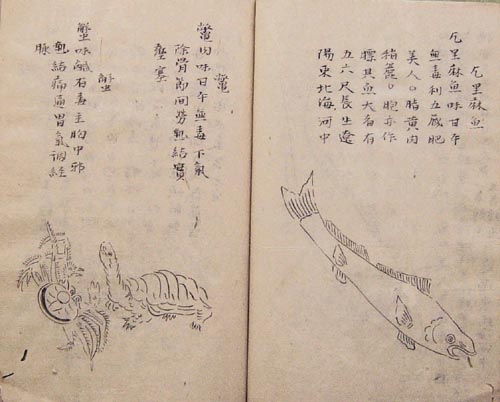 乞里麻魚
乞里麻魚味甘平
無毒利五臓肥
美人○脂黄肉
稍麄○胞亦作
膘其魚大名有
五六尺長生遼
陽東北海河中
鱉
鱉肉味甘平無毒下氣
除骨節間勞熱結實
壅塞
蟹
蟹味鹹有毒主胸中邪
熱結痛通胃氣調經
脉